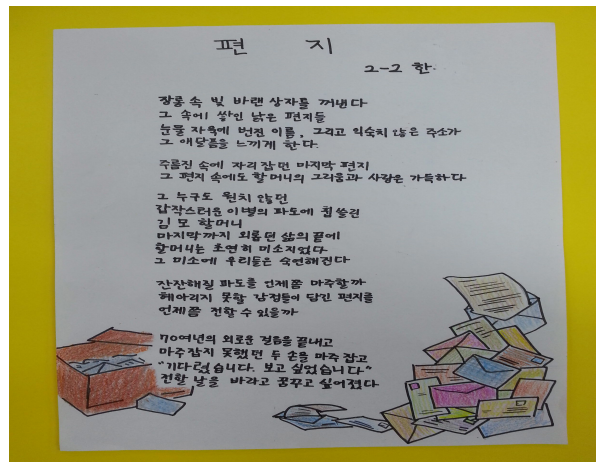 편 지
2-2 한
장롱 속 빛 바랜 상자를 꺼낸다
그 속에 쌓인 낡은 편지들
눈물 자욱에 번진 이름, 그리고 익숙치 않은 주소가
그 애달픔을 느끼게 한다.
주름진 속에 자리 잡던 마지막 편지
그 편지 속에도 할머니의 그리움과 사랑은 가득하다
그 누구도 원치 않던
갑작스러운 이별의 파도에 휩쓸린
김 모 할머니
마지막까지 외롭던 삶의 끝에
할머니는 초연히 미소지었다
그 미소에 우리들은 숙연해진다
잔잔해질 파도를 언제쯤 마주할까
헤아리지 못할 감정들이 담긴 편지를
언제쯤 전할 수 있을까
70여년의 외로운 걸음을 끝내고
마주잡지 못했던 두 손을 마주 잡고
"기다렸습니다. 보고 싶었습니다"
전할 날을 바라고 꿈꾸고 싶어졌다